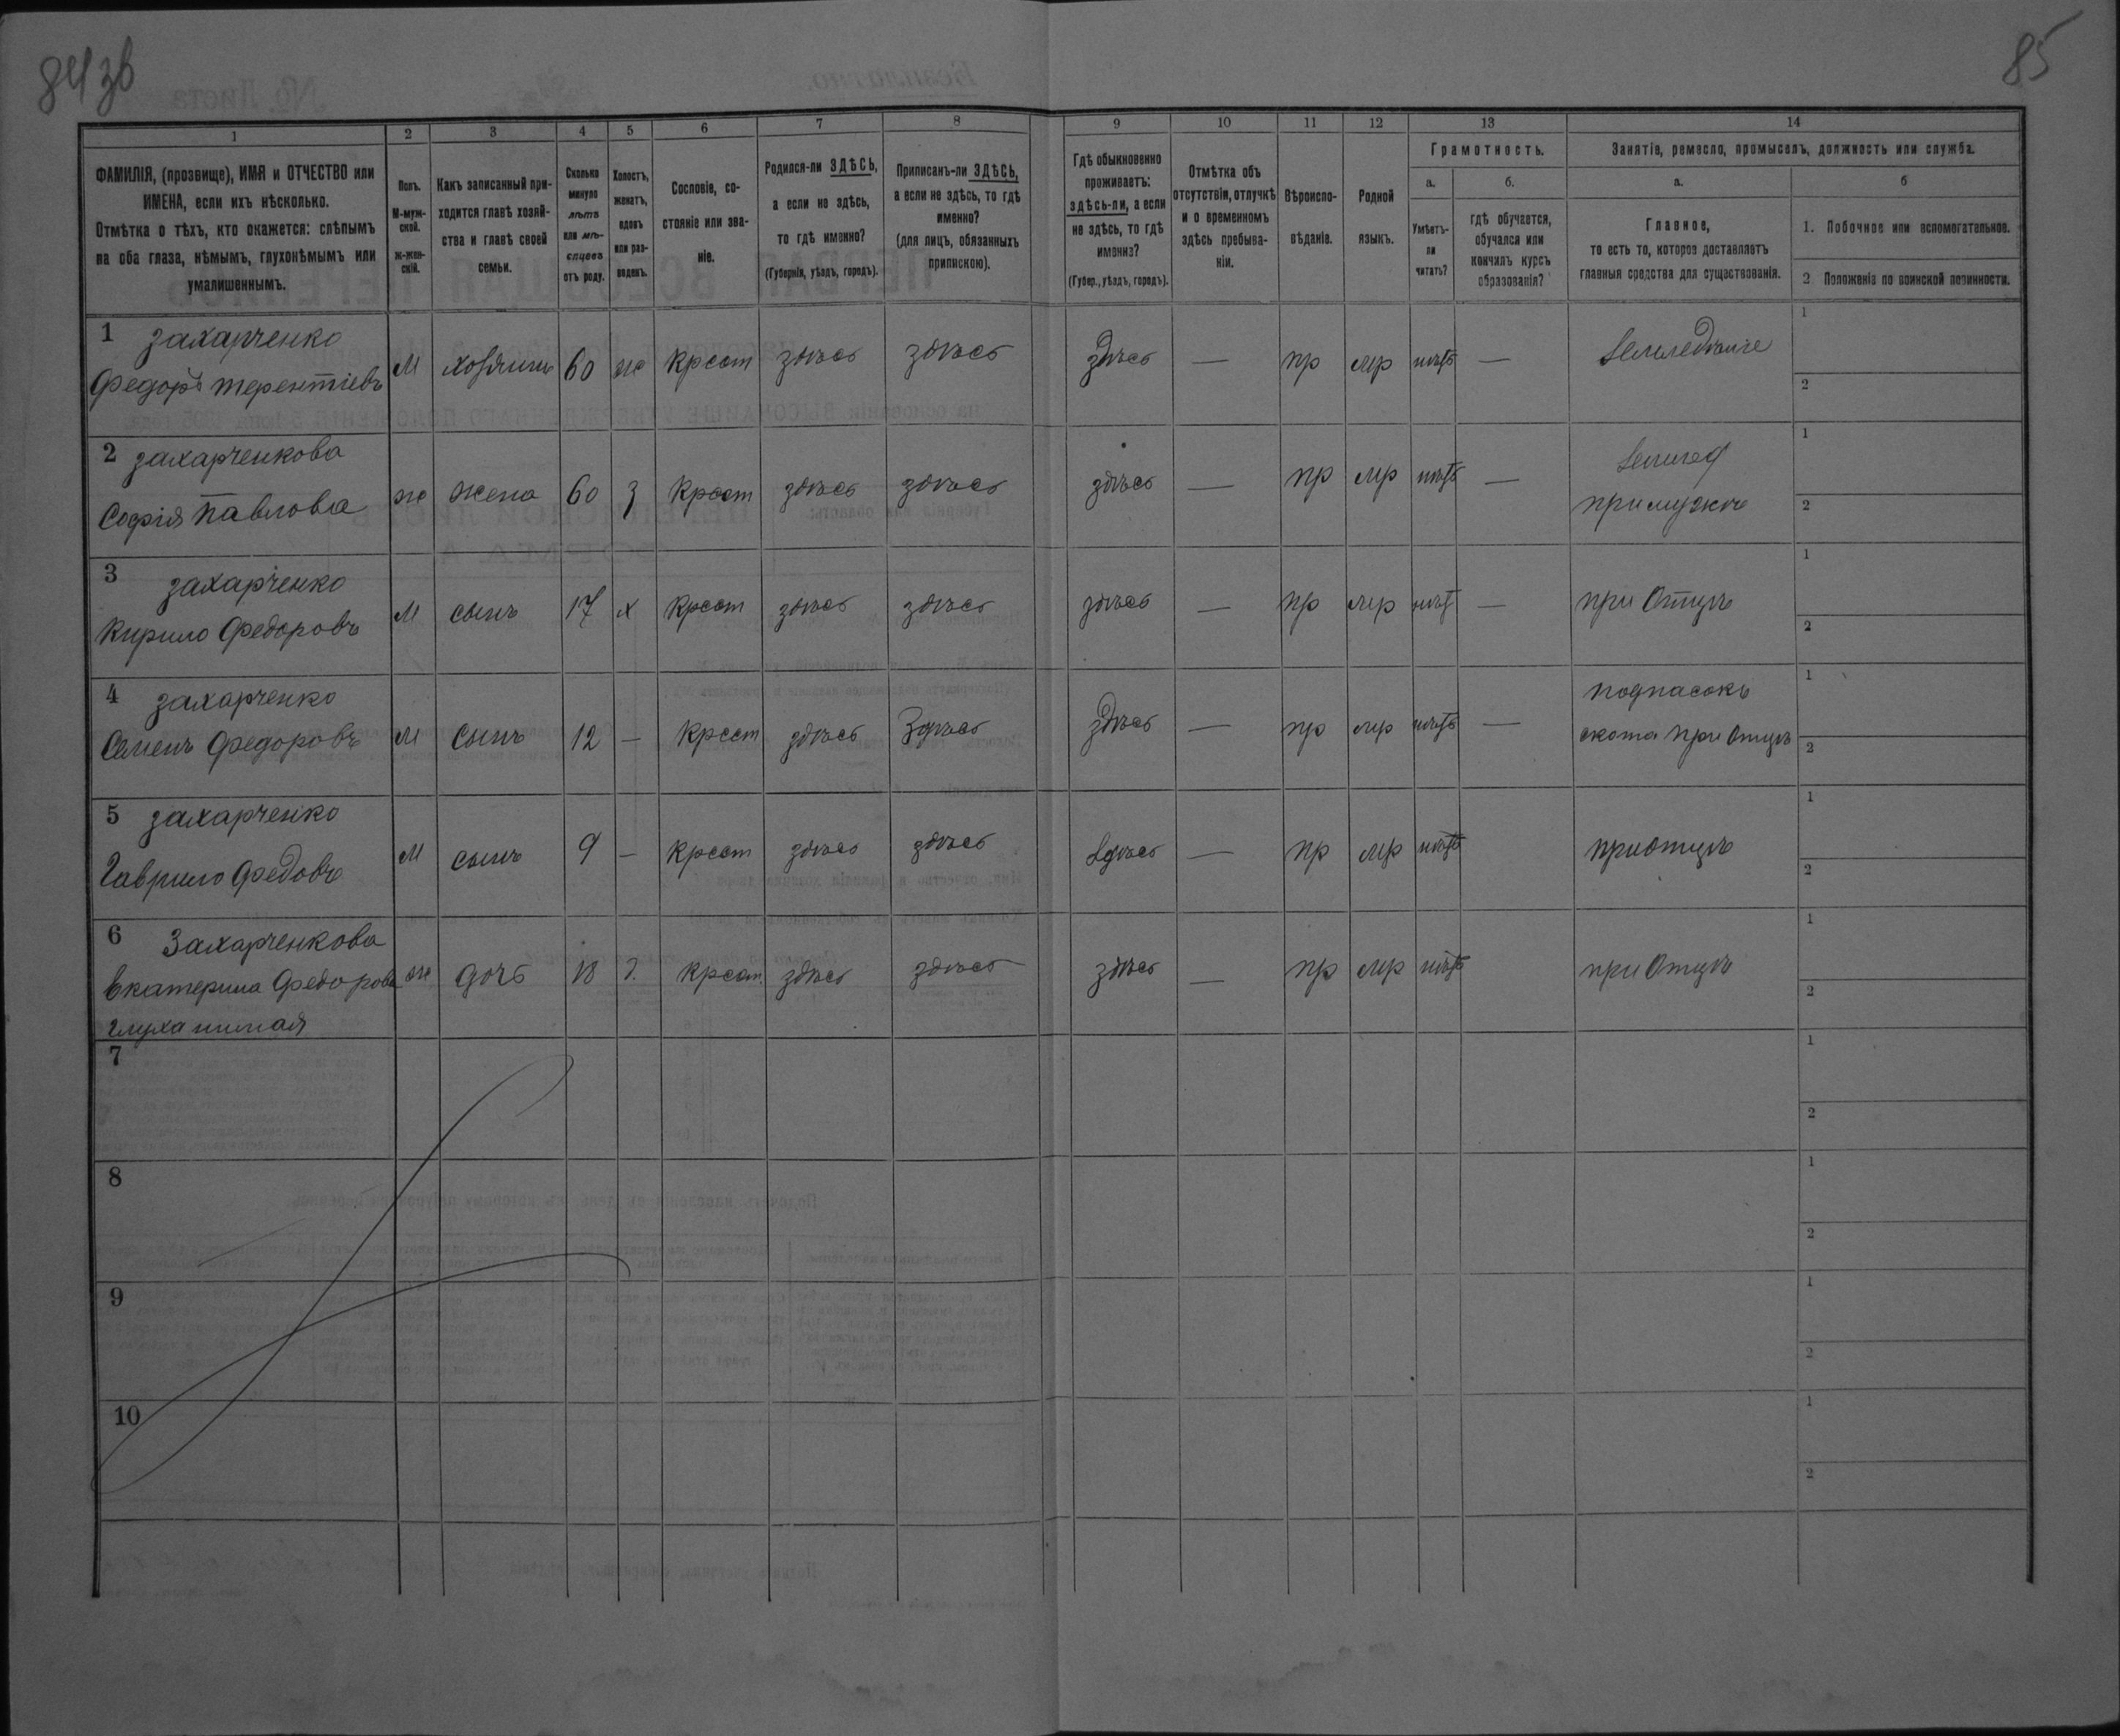 84 зв
85
1 2 3 4 5 6 7 8 9 10 11 12 13 14
ФАМИЛІЯ, (прозвище), ИМЯ и ОТЧЕСТВО или
ИМЕНА, если ихъ нѣсколько.
Отмѣтка о тѣхъ, кто окажется: слѣпымъ
на оба глаза, нѣмымъ, глухонѣмымъ или
умалишеннымъ.
Полъ.
М-муж-
ской.
Ж-жен-
скій.
Какъ записанный при-
ходится главѣ хозяй-
ства и главѣ своей
семьи.
Сколько
минуло
лѣтъ
или мѣ-
сяцевъ
отъ роду.
Холостъ,
женатъ,
вдовъ
или раз-
веденъ.
Сословіе, со-
стояніе или зва-
ніе.
Родился-ли ЗДѢСЬ,
а если не здѣсь,
то гдѣ именно?
(Губернія, уѣздъ, городъ).
Приписанъ-ли ЗДѢСЬ,
а если не здѣсь, то гдѣ
именно?
(для лицъ, обязанныхъ
припискою).
Гдѣ обыкновенно
проживаетъ:
здѣсь-ли, а если
не здѣсь, то гдѣ
именно?
(Губер., уѣздъ, городъ).
Отмѣтка объ
отсутствіи, отлучкѣ
и о временномъ
здѣсь пребыва-
ніи.
Вѣроиспо-
вѣданіе.
Родной
языкъ.
Грамотность.
а.
Умѣетъ-
ли
читать?
б.
гдѣ обучается,
обучался или
кончилъ курсъ
образованія?
Занятіе, ремесло, промыселъ, должность или служба.
а.
Главное,
то есть то, которое доставляетъ
главныя средства для существованія.
б
1. Побочное или вспомогательное.
2 Положеніе по воинской повинности.
1 захарченко
Федоръ терентіевъ М хозяинъ 60 ж крест здѣсь здѣсь здѣсь — пр мр нѣтъ — Земледѣліе
1
2
2 захарченкова
Софія Павлова ж жена 60 з крест здѣсь здѣсь здѣсь — пр мр нѣтъ — Землед
при мужѣ
1
2
3 захарченко
Кирило Федоровъ М сынъ 17 х крест здѣсь здѣсь здѣсь — пр мр нѣтъ — при Отцѣ
1
2
4 захарченко
Семенъ Федоровъ М сынъ 12 — крест здѣсь здѣсь здѣсь — пр мр нѣтъ — подпасокъ
скота при Отцѣ
1
2
5 захарченко
Гаврило Федовъ М сынъ 9 — крест здѣсь здѣсь здѣсь — пр мр нѣтъ при отцѣ
1
2
6 Захарченкова
Екатерина Федорова ж дочь 18 д. крест. здѣсь здѣсь здѣсь — пр мр нѣтъ при Отцѣ
глуха нимая
1
2
7
1
2
8
1
2
9
1
2
10
1
2